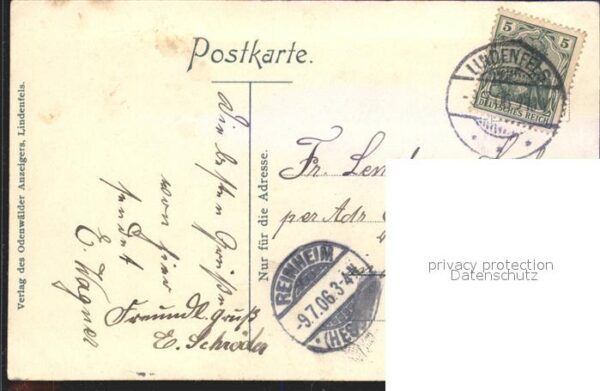 Postkarte.
5 5
DEUTSCHES REICH
LINDENFELS
Verlag des Odenwälder Anzeigers, Lindenfels.
Die besten Grüße
von hier
sendet
E. Wagner
Freundl. Gruß
E. Schröder
Nur für die Adresse.
Fr.
per Adr
REINHEIM
-9.7.06.3-4N.
(HES
privacy protection
Datenschutz